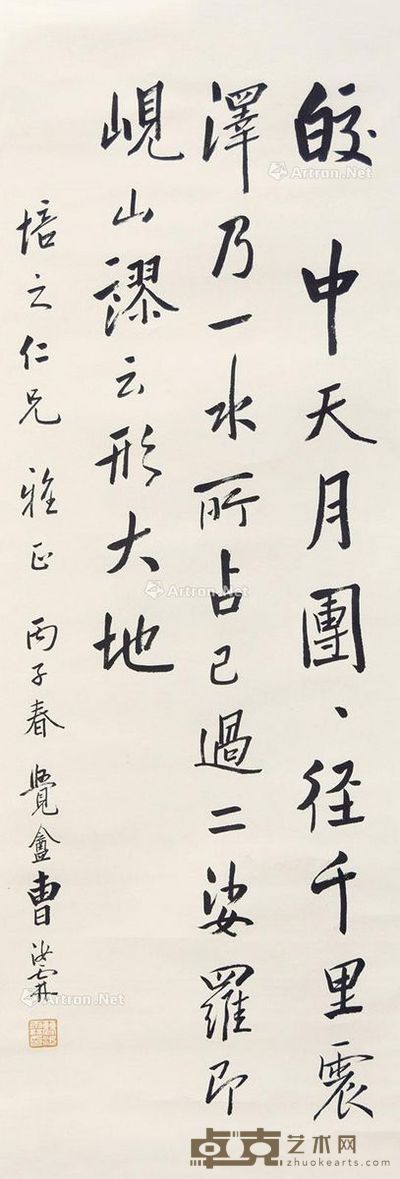 皎 中天月團、径千里震
澤乃一水所占已過二娑羅即
峴山謬云形大地
培之仁兄 雅正 丙子春 覺盦曹汝霖
Artron.Net
Artron.Net
Artron.Net
卓克艺术网
zhuokearts.com